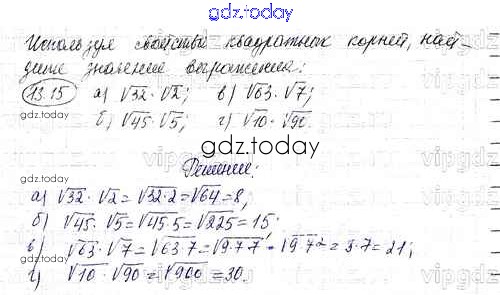 gdz.today
Используя свойства квадратных корней, най-
дите значение выражения:
13.15 а) √32 · √2; в) √63 · √7;
б) √45 · √5; г) √10 · √90.
gdz.today
Решение:
а) √32 · √2 = √32·2 = √64 = 8;
б) √45 · √5 = √45·5 = √225 = 15.
в) √63 · √7 = √63·7 = √9·7·7 = √9·7² = 3·7 = 21;
г) √10 · √90 = √900 = 30.
gdz.today